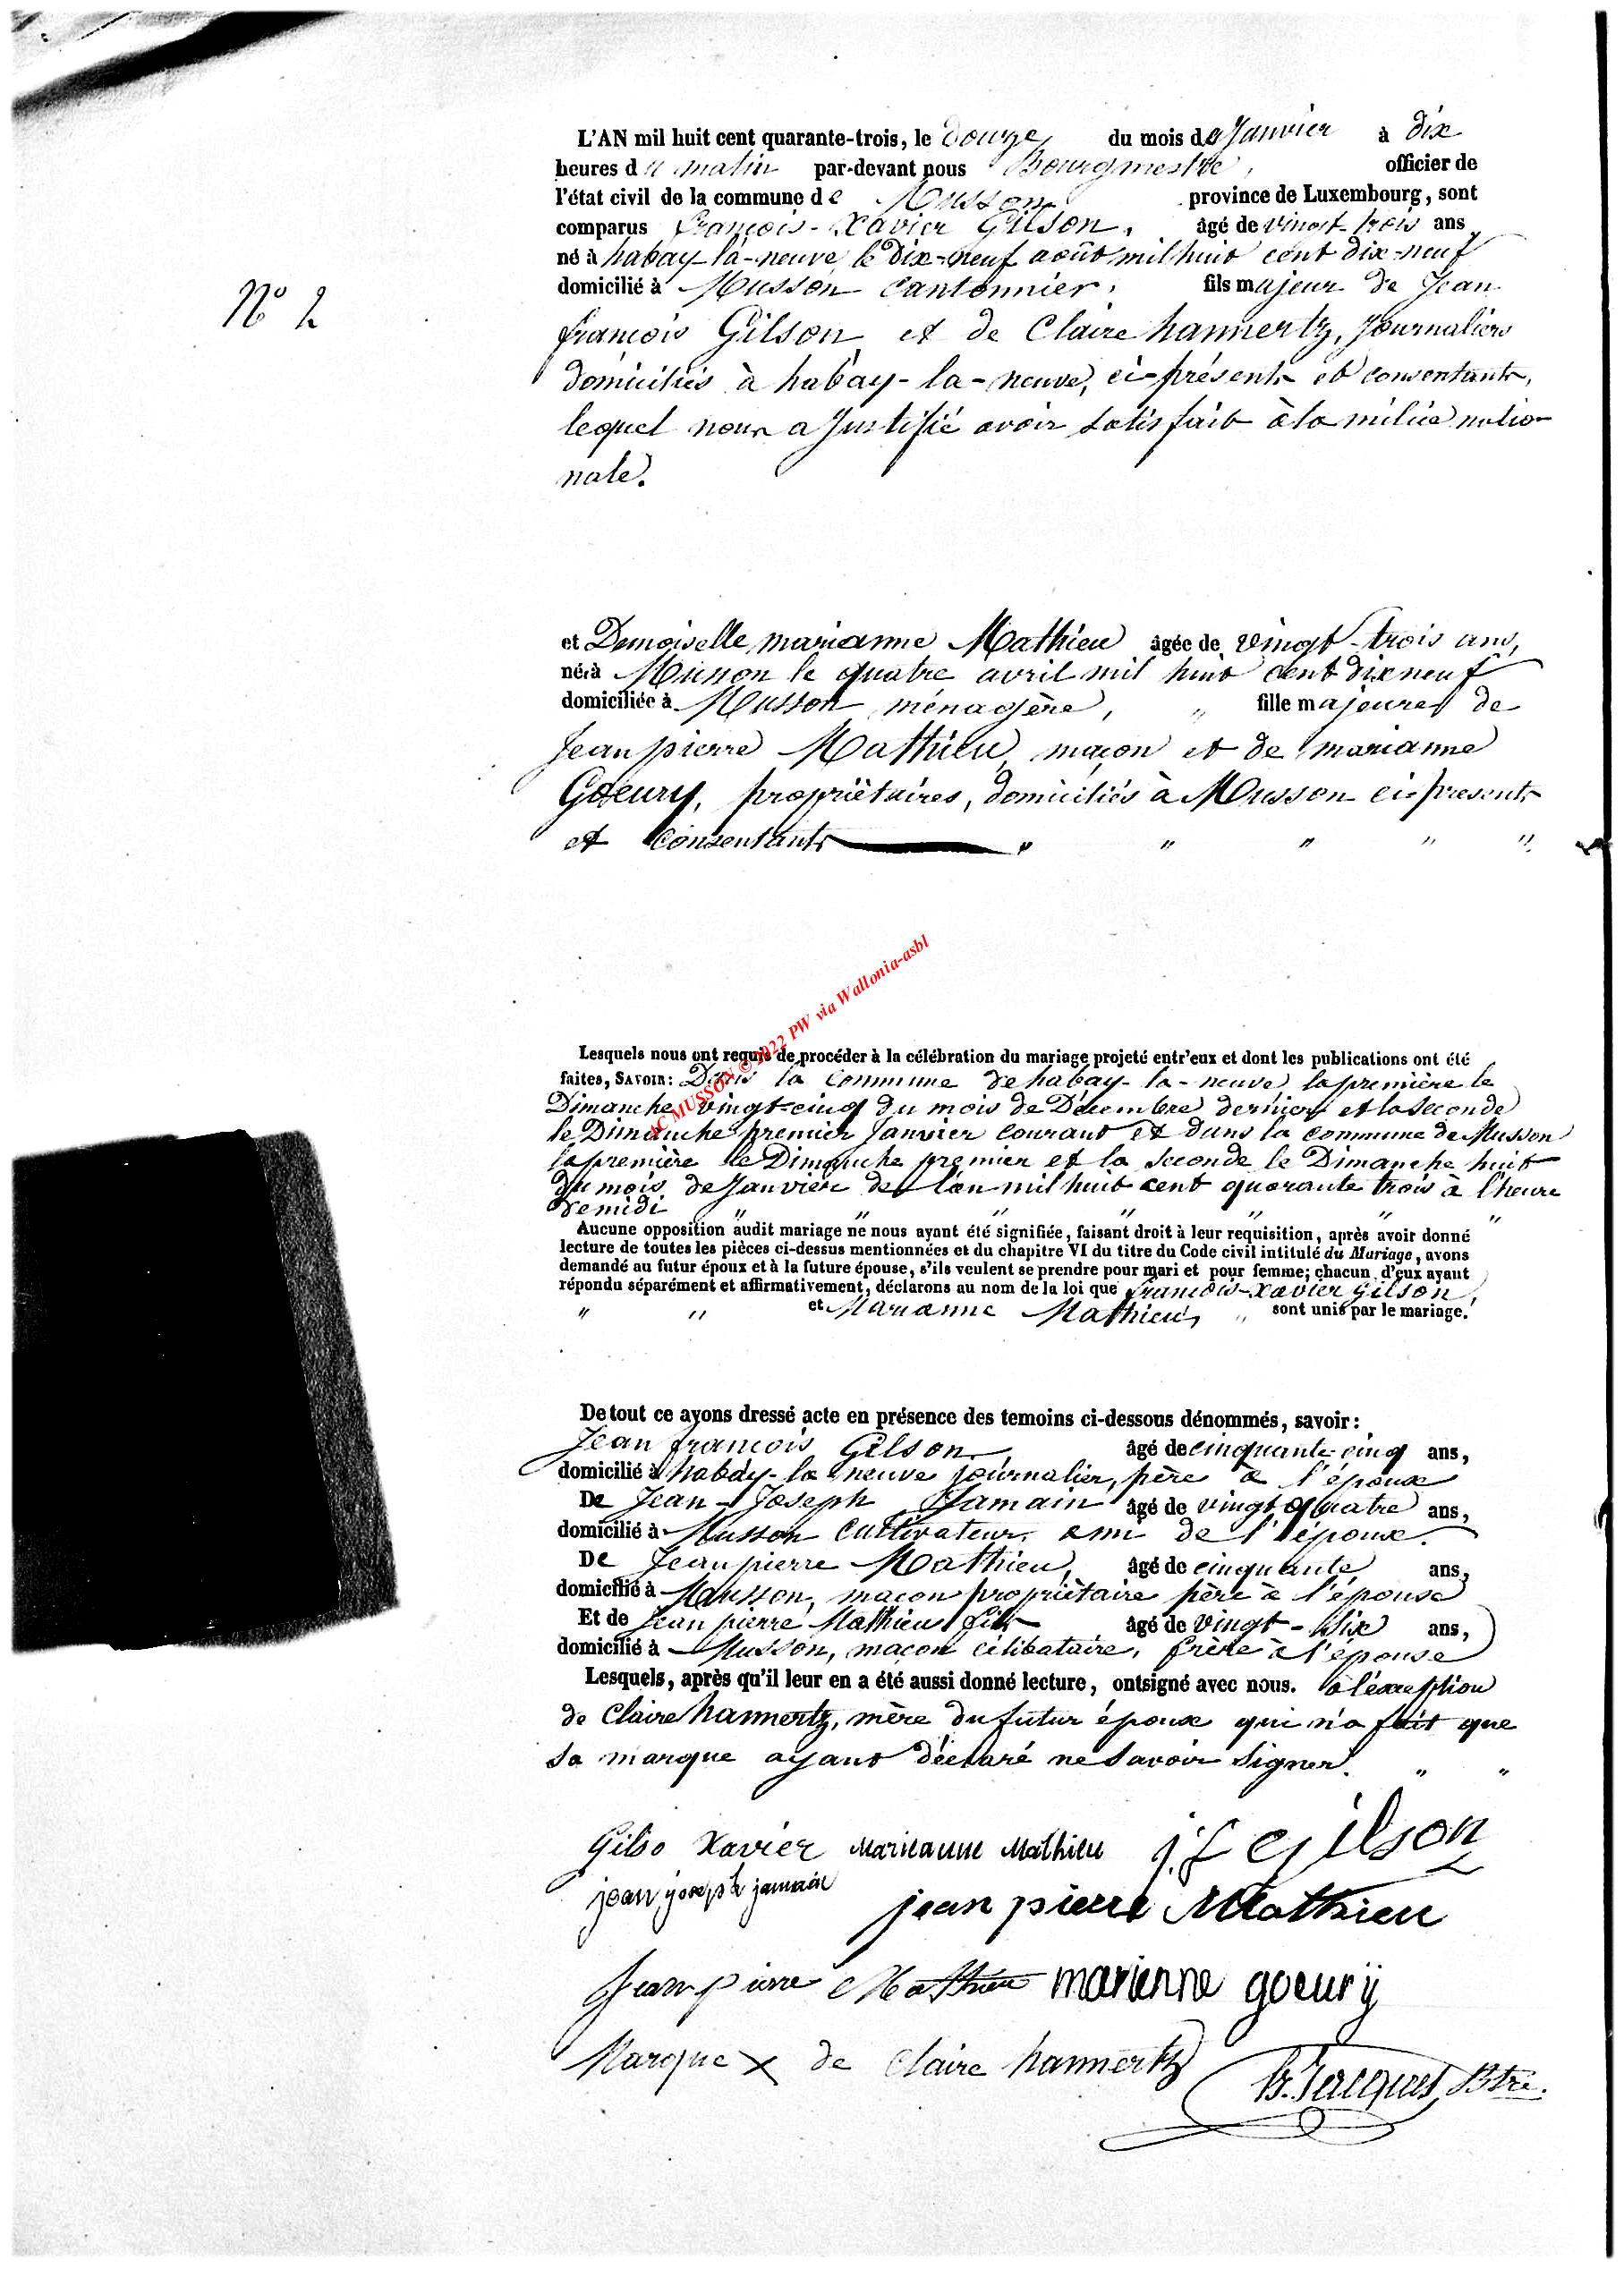 L'AN mil huit cent quarante-trois, le Douze du mois de Janvier à dix
heures du matin par-devant nous Bourgmestre, officier de
l'état civil de la commune de Musson province de Luxembourg, sont
comparus françois-Xavier Gilson, âgé de vingt-trois ans,
né à habay-la-neuve le Dix-neuf août mil huit cent dix-neuf
domicilié à Musson Cantonnier, fils majeur de Jean
N° 2
françois Gilson et de Claire hannertz, Journaliers
domiciliés à habay-la-neuve, ci-présents et consentants,
lequel nous a Justifié avoir satisfait à la milice natio-
nale.
et Demoiselle marianne Mathieu âgée de vingt-trois ans,
née à Musson le quatre avril mil huit cent dix neuf
domiciliée à Musson ménagère, " fille majeure de
Jean pierre Mathieu, maçon et de marianne
Goeury, propriétaires, domiciliés à Musson ci-présents
et consentants " " " " "
AC MUSSON © 1922 PW via Wallonia-asbl
Lesquels nous ont requis de procéder à la célébration du mariage projeté entr'eux et dont les publications ont été
faites, SAVOIR: Dans la Commune de habay-la-neuve la première le
Dimanche vingt-cinq du mois de Décembre dernier et la Seconde
le Dimanche premier Janvier courant et dans la commune de Musson
la première le Dimanche premier et la seconde le Dimanche huit
du mois de Janvier de l'an mil huit cent quarante trois à l'heure
de midi " " " " " "
Aucune opposition audit mariage ne nous ayant été signifiée, faisant droit à leur requisition, après avoir donné
lecture de toutes les pièces ci-dessus mentionnées et du chapitre VI du titre du Code civil intitulé du Mariage, avons
demandé au futur époux et à la future épouse, s'ils veulent se prendre pour mari et pour femme; chacun d'eux ayant
répondu séparément et affirmativement, déclarons au nom de la loi que françois-Xavier Gilson,
" " et Marianne Mathieu, " sont unis par le mariage.
De tout ce ayons dressé acte en présence des temoins ci-dessous dénommés, savoir:
Jean françois Gilson âgé de cinquante-cinq ans,
domicilié à habay-la-neuve journalier, père à l'époux
De Jean-Joseph Jamain âgé de vingt quatre ans,
domicilié à Musson Cultivateur, ami de l'époux.
De Jean pierre Mathieu, âgé de cinquante ans,
domicilié à Musson, maçon propriétaire père à l'épouse
Et de Jean pierre Mathieu fils âgé de vingt-six ans,
domicilié à Musson, maçon célibataire, frère à l'épouse
Lesquels, après qu'il leur en a été aussi donné lecture, ont signé avec nous. à l'exception
de Claire hannertz, mère du futur époux qui n'a fait que
sa marque ayant déclaré ne savoir signer. " "
Gilso Xavier Marieanne Mathieu j. f gilson
jean joseph jamain jean pierre Mathieu
Jean pierre Mathieu marienne goeurij
Marque X de Claire hannertz
Jacques Btre.